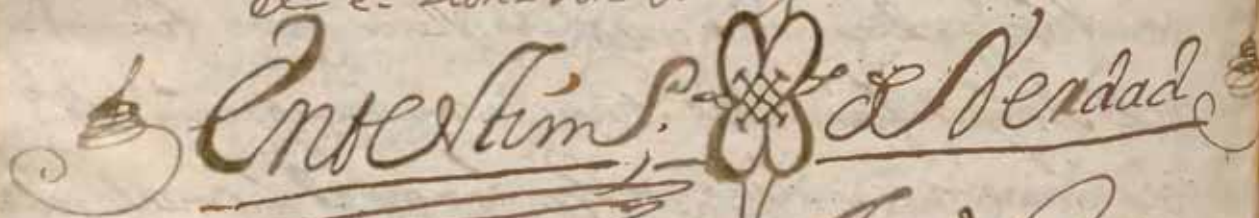 En testim.º de Verdad